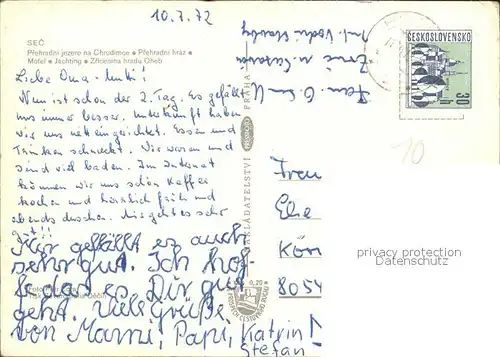 10.7.72
SEČ
Přehradní jezero na Chrudimce ● Přehradní hráz ●
Motel ● Jachting ● Zřícenina hradu Oheb
Liebe Oma-Mutti!
Nun ist schon der 2. Tag. Es gefällt
uns immer besser. Unterkunft haben
wir uns nett eingerichtet. Essen und
Trinken schmeckt. Wir waren und
sind viel baden. Im Internat
können wir uns schön Kaffee
kochen und herrlich früh und
abends duschen. Uns geht es sehr
gut!!
Mir gefällt es auch
sehr gut. Ich hof-
fe das es Dir gut
geht. Viele Grüße
von Mami, Papi, Katrin!
Stefan
NAKLADATELSTVÍ
PRAHA
0,20
ČESKOSLOVENSKO
30
h
10
Frau
Kön
8054
privacy protection
Datenschutz